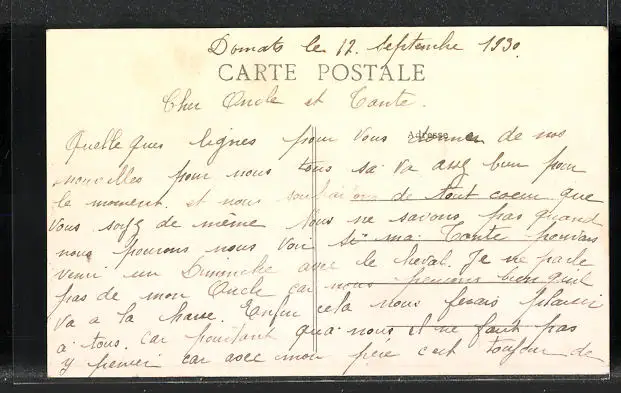 Domats le 12. Septembre 1930
CARTE POSTALE
Cher Oncle et Tante.
Adresse
Quelle ques lignes pour vous donner de nos
nouvelles pour nous tous sa va assez bien pour
le moment. et nous souhaitons de tout coeur que
Vous soyez de même Nous ne savons pas quand
nous pourons nous voir Si ma Tante pouvais
venir un Dimanche avec le cheval. Je ne parle
pas de mon Oncle car nous pensons bien quil
va a la chasse. Enfin cela nous ferais plaisir
a tous. car pourtant qua nous il ne faut pas
y penser car avec mon père c'est toujour de